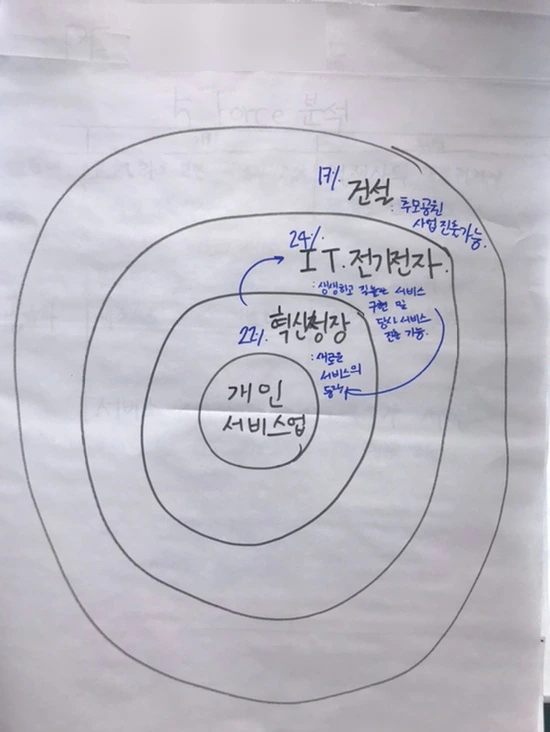 5 Force 분석
17%
건설
: 추모공원
사업 진출가능.
24%
IT. 전기전자.
: 생생하고 서비스
구현 및
당사 서비스
가능.
22%
혁신청장
: 새로운
서비스의
개인
서비스업